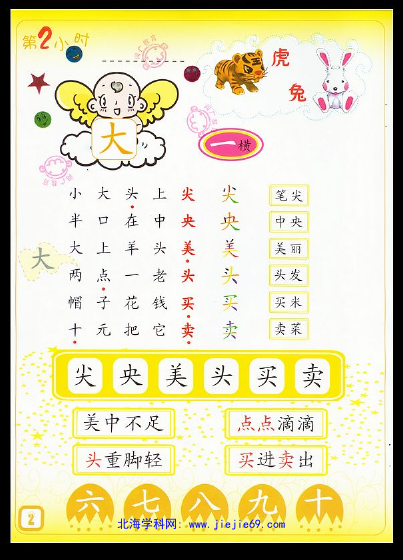 第2小时
虎
兔
大
一 横
小 大 头 上 尖 尖 笔尖
半 口 在 中 央 央 中央
大 上 羊 头 美 美 美丽
大
两 点 一 老 头 头 头发
帽 子 花 钱 买 买 买米
十 元 把 它 卖 卖 卖菜
尖 央 美 头 买 卖
美中不足 点点滴滴
头重脚轻 买进卖出
六 七 八 九 十
北海学科网：www.jiejie69.com
2